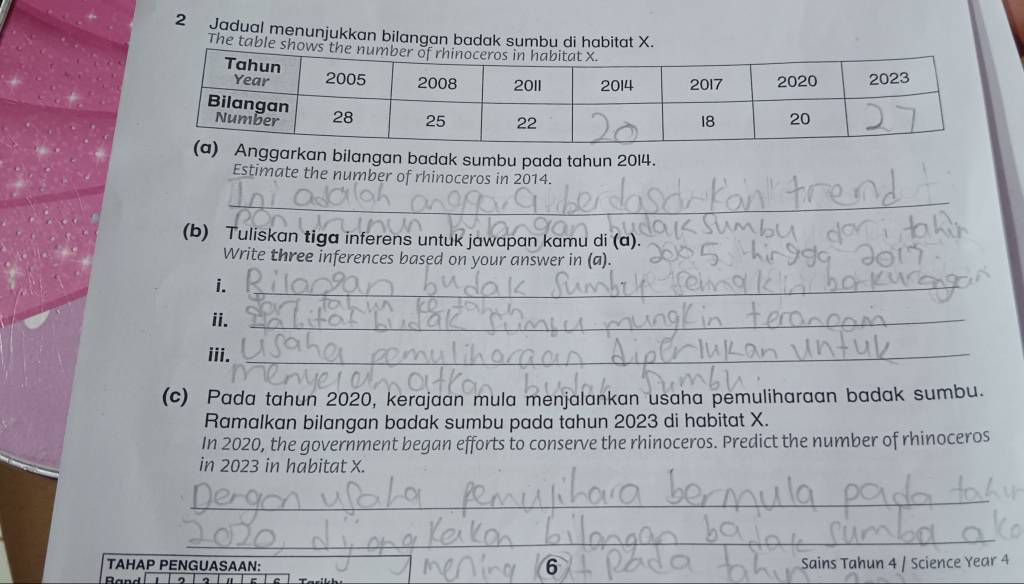 2 Jadual menunjukkan bilangan badak sumbu di habitat X.
The table shows the number of rhinoceros in habitat X.
Tahun 2005 2008 2011 2014 2017 2020 2023
Year
Bilangan 28 25 22 20 18 20 27
Number
(a) Anggarkan bilangan badak sumbu pada tahun 2014.
Estimate the number of rhinoceros in 2014.
Ini adalah anggara berdasarkan trend
bilangan budak sumbu dari tahun
(b) Tuliskan tiga inferens untuk jawapan kamu di (a).
2005 hingga 2017.
Write three inferences based on your answer in (a).
i. Bilangan budak Sumbu berkurangan
dari tahun ke tahun
ii. Habitat budak sumbu mungkin terancam
iii. Usaha pemuliharaan diperlukan untuk
menyelamatkan budak sumbu.
(c) Pada tahun 2020, kerajaan mula menjalankan usaha pemuliharaan badak sumbu.
Ramalkan bilangan badak sumbu pada tahun 2023 di habitat X.
In 2020, the government began efforts to conserve the rhinoceros. Predict the number of rhinoceros
in 2023 in habitat X.
Dengan usaha pemulihara bermula pada tahun
2020, dijangkakan bilangan badak sumba ako
pada tahun
TAHAP PENGUASAAN:
6
Sains Tahun 4 / Science Year 4
Band 1 2 3 4 5 6 Tarikh: